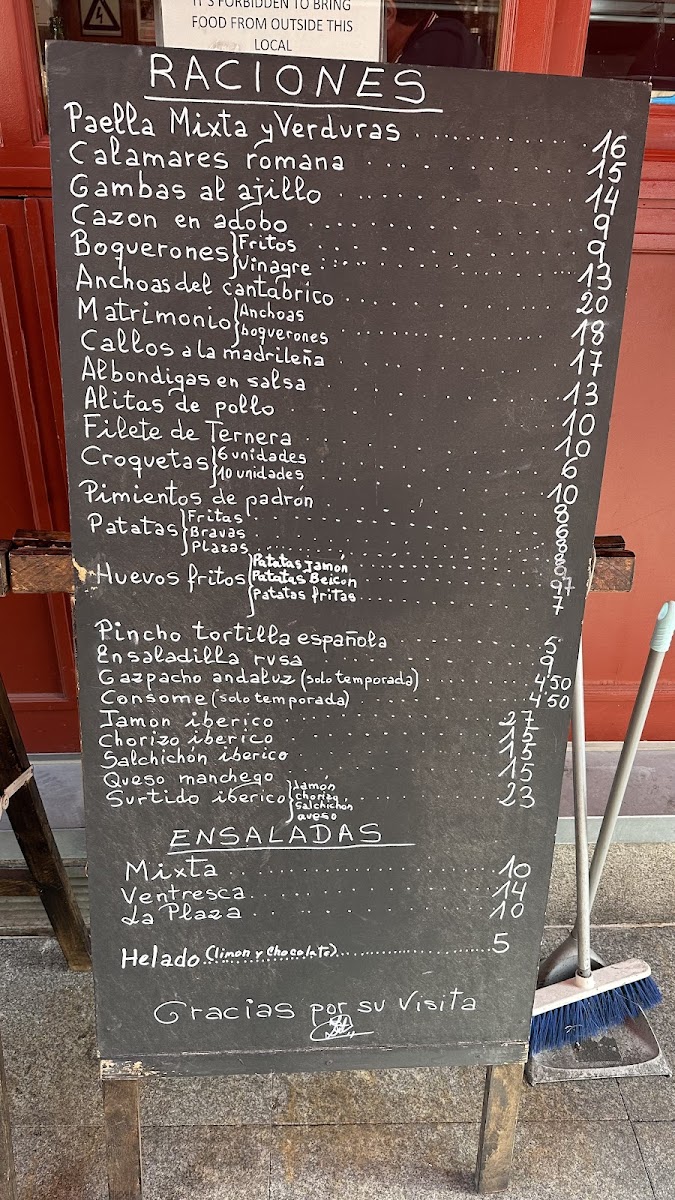 IT'S FORBIDDEN TO BRING
FOOD FROM OUTSIDE THIS
LOCAL
RACIONES
Paella Mixta y Verduras 16
Calamares romana 15
Gambas al ajillo 14
Cazon en adobo 9
Boquerones Fritos 9
Vinagre 13
Anchoas del cantabrico 20
Matrimonio Anchoas
boquerones 18
Callos a la madrileña 17
Albondigas en salsa 13
Alitas de pollo 10
Filete de Ternera 10
Croquetas 6 unidades 6
10 unidades 10
Pimientos de padron 8
Patatas Fritas 6
Bravas 8
Plazas 8
Huevos fritos Patatas Jamón 9
Patatas Beicon 7
Patatas fritas 7
Pincho tortilla española 5
Ensaladilla rusa 9
Gazpacho andaluz (solo temporada) 4'50
Consome (solo temporada) 4'50
Jamon iberico 27
Chorizo iberico 15
Salchichón iberico 15
Queso manchego 15
Surtido iberico Jamón 23
chorizo
Salchichón
queso
ENSALADAS
Mixta 10
Ventresca 14
La Plaza 10
Helado (limon y chocolate) 5
Gracias por su visita